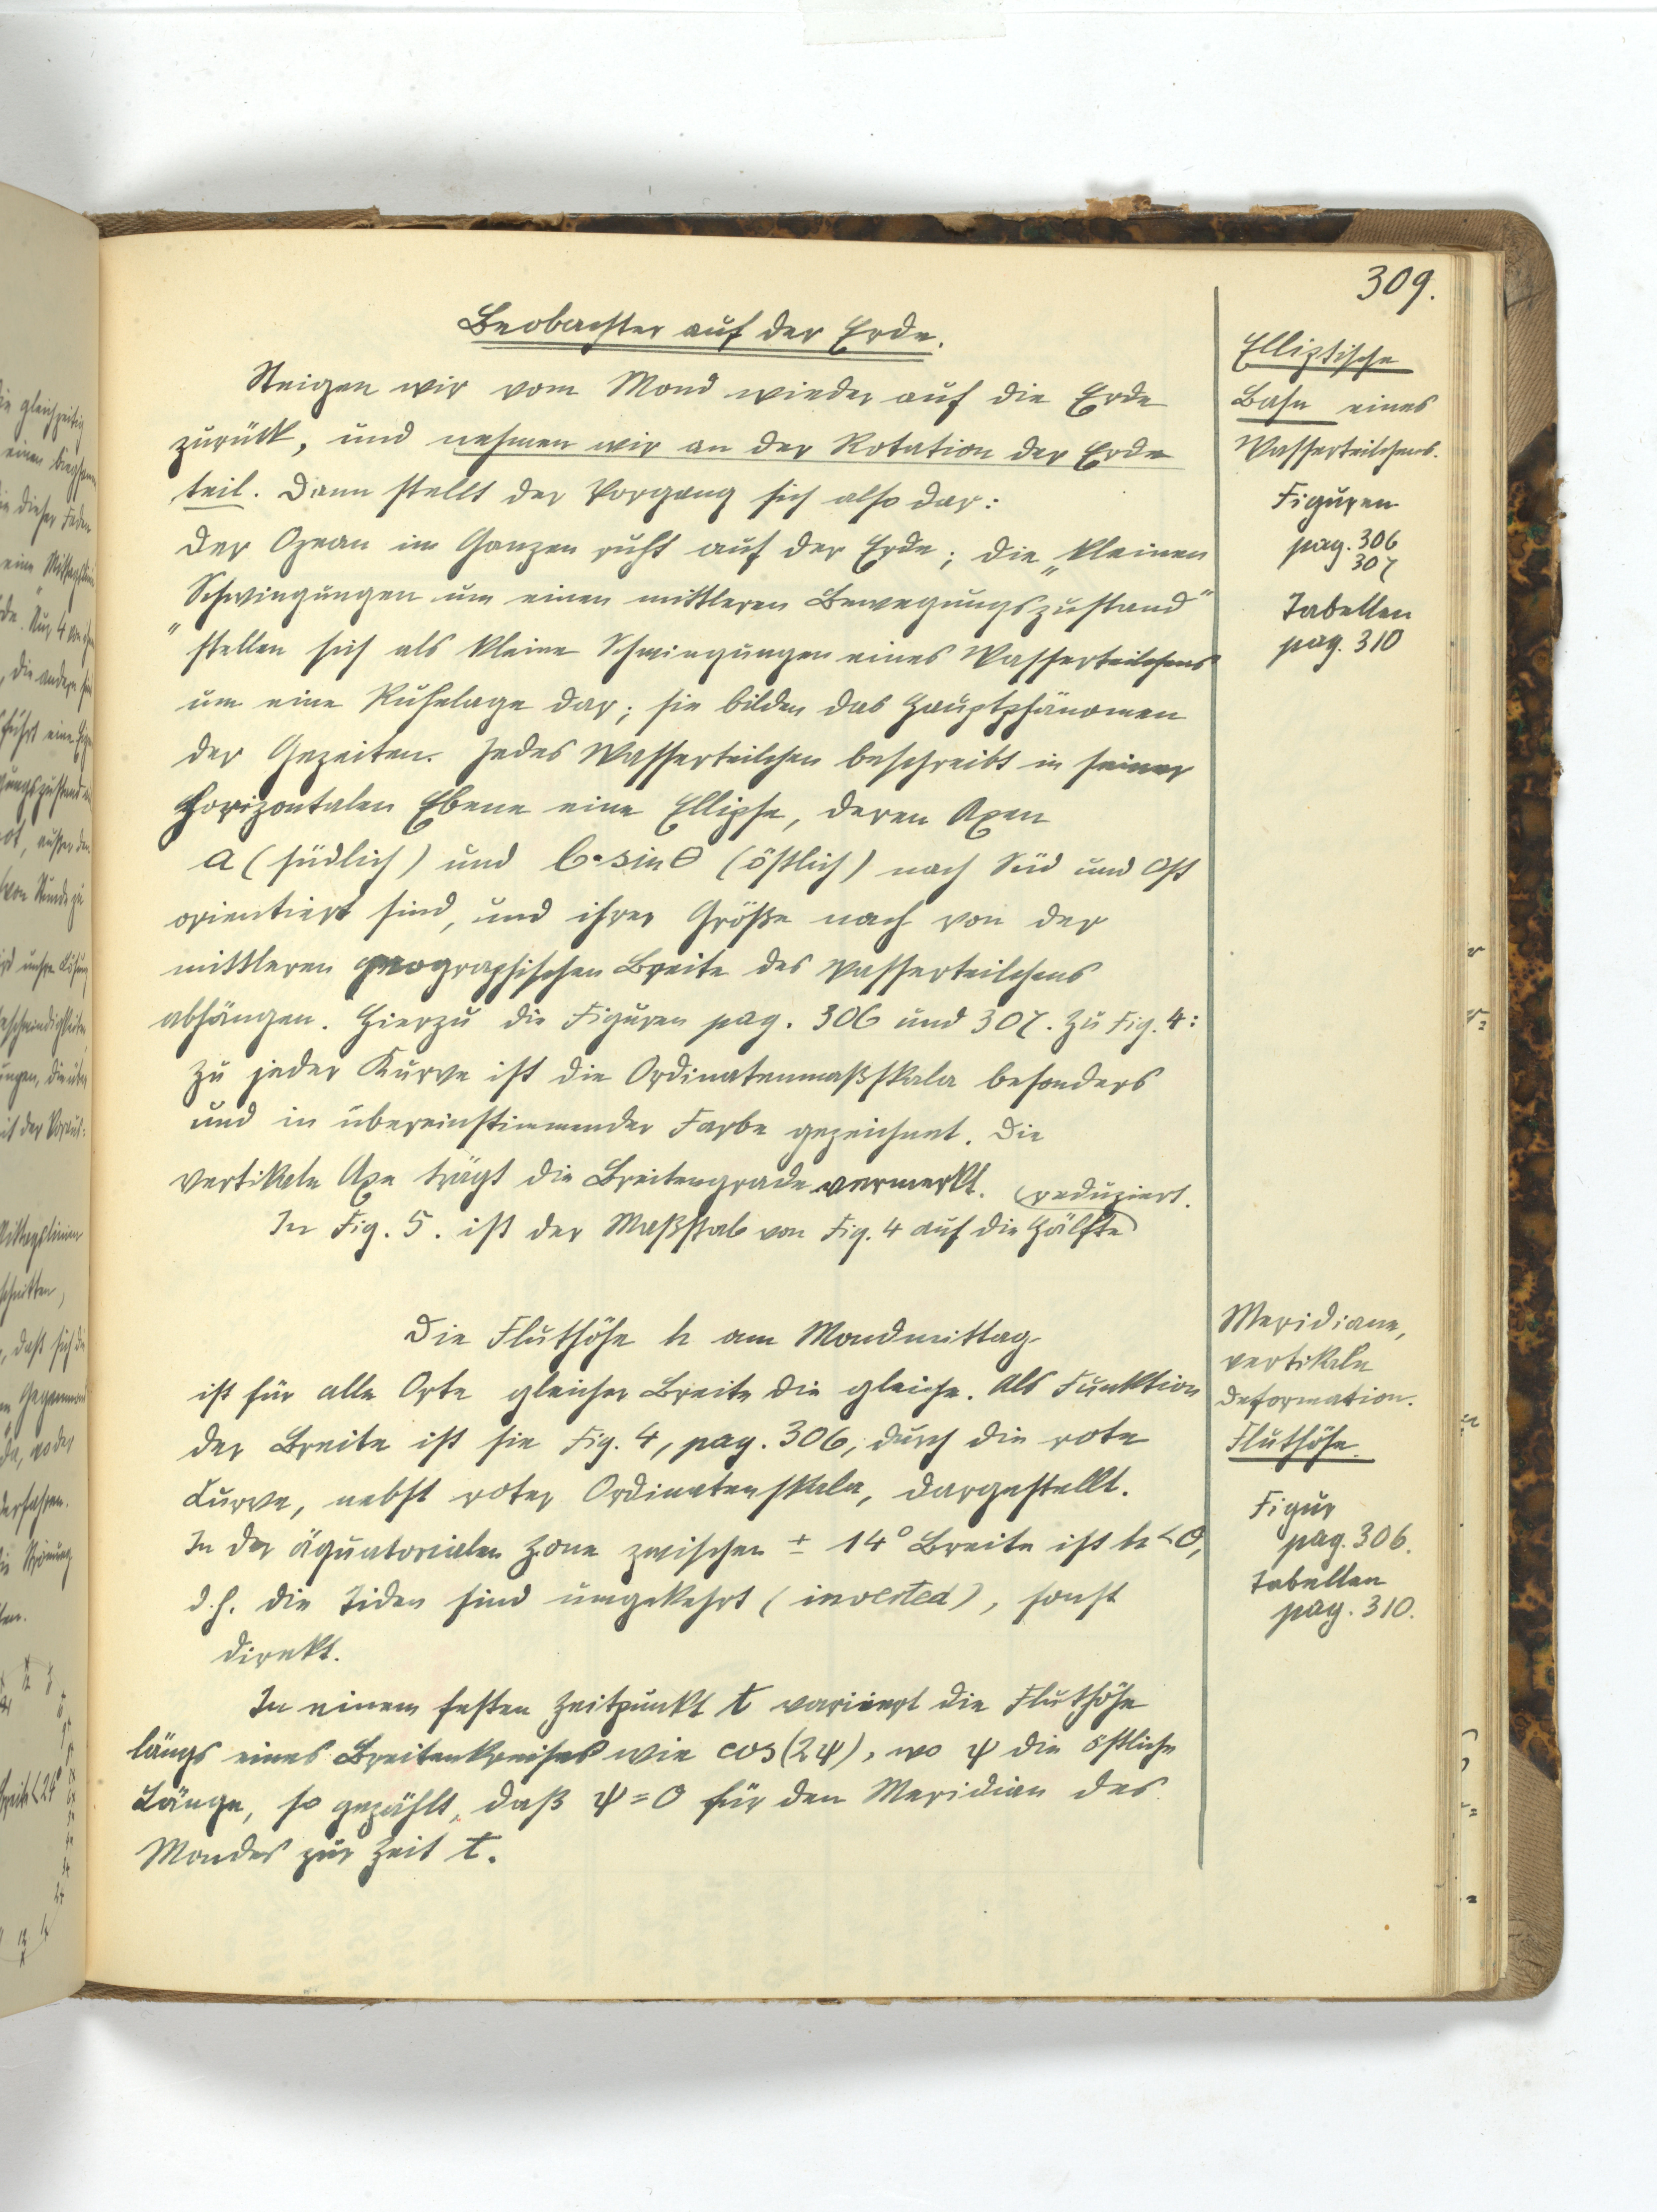 309.
Beobachter auf der Erde.
Steigen wir vom Mond wieder auf die Erde
zurück, und nehmen wir an der Rotation der Erde
teil. Dann stellt der Vorgang sich also dar:
Der Ozean im Ganzen ruht auf der Erde; die „kleinen
Schwingungen um einen mittleren Bewegungszustand"
" stellen sich als kleine Schwingungen eines Wasserteilchens
um eine Ruhelage dar; sie bilden das Hauptphänomen
der Gezeiten. Jedes Wasserteilchen beschreibt in seiner
horizontalen Ebene eine Ellipse, deren Axen
a (südlich) und b·sin θ (östlich) nach Süd und Ost
orientiert sind, und ihrer Größe nach von der
mittleren geographischen Breite des Wasserteilchens
abhängen. Hierzu die Figuren pag. 306 und 307. Zu Fig. 4:
Zu jeder Kurve ist die Ordinatenmaßskala besonders
und in übereinstimmender Farbe gezeichnet. Die
vertikale Axe trägt die Breitengrade vermerkt.
In Fig. 5. ist der Maßstab von Fig. 4 auf die Hälfte
reduziert.
Elliptische
Bahn eines
Wasserteilchens.
Figuren
pag. 306
307
Tabellen
pag. 310
Die Fluthöhe h am Mondmittag
ist für alle Orte gleicher Breite die gleiche. Als Funktion
der Breite ist sie Fig. 4, pag. 306, durch die rote
Curve, nebst roter Ordinatenskala, dargestellt.
In der äquatorialen Zone zwischen ± 14° Breite ist h<0,
d.h. die Tiden sind umgekehrt (inverted), sonst
direkt.
In einem festen Zeitpunkt t variiert die Fluthöhe
längs eines Breitenkreises wie cos(2ψ), wo ψ die östliche
Länge, so gezählt, daß ψ=0 für den Meridian des
Mondes zur Zeit t.
Meridiane,
vertikale
Deformation.
Fluthöhe.
Figur
pag. 306.
Tabellen
pag. 310.